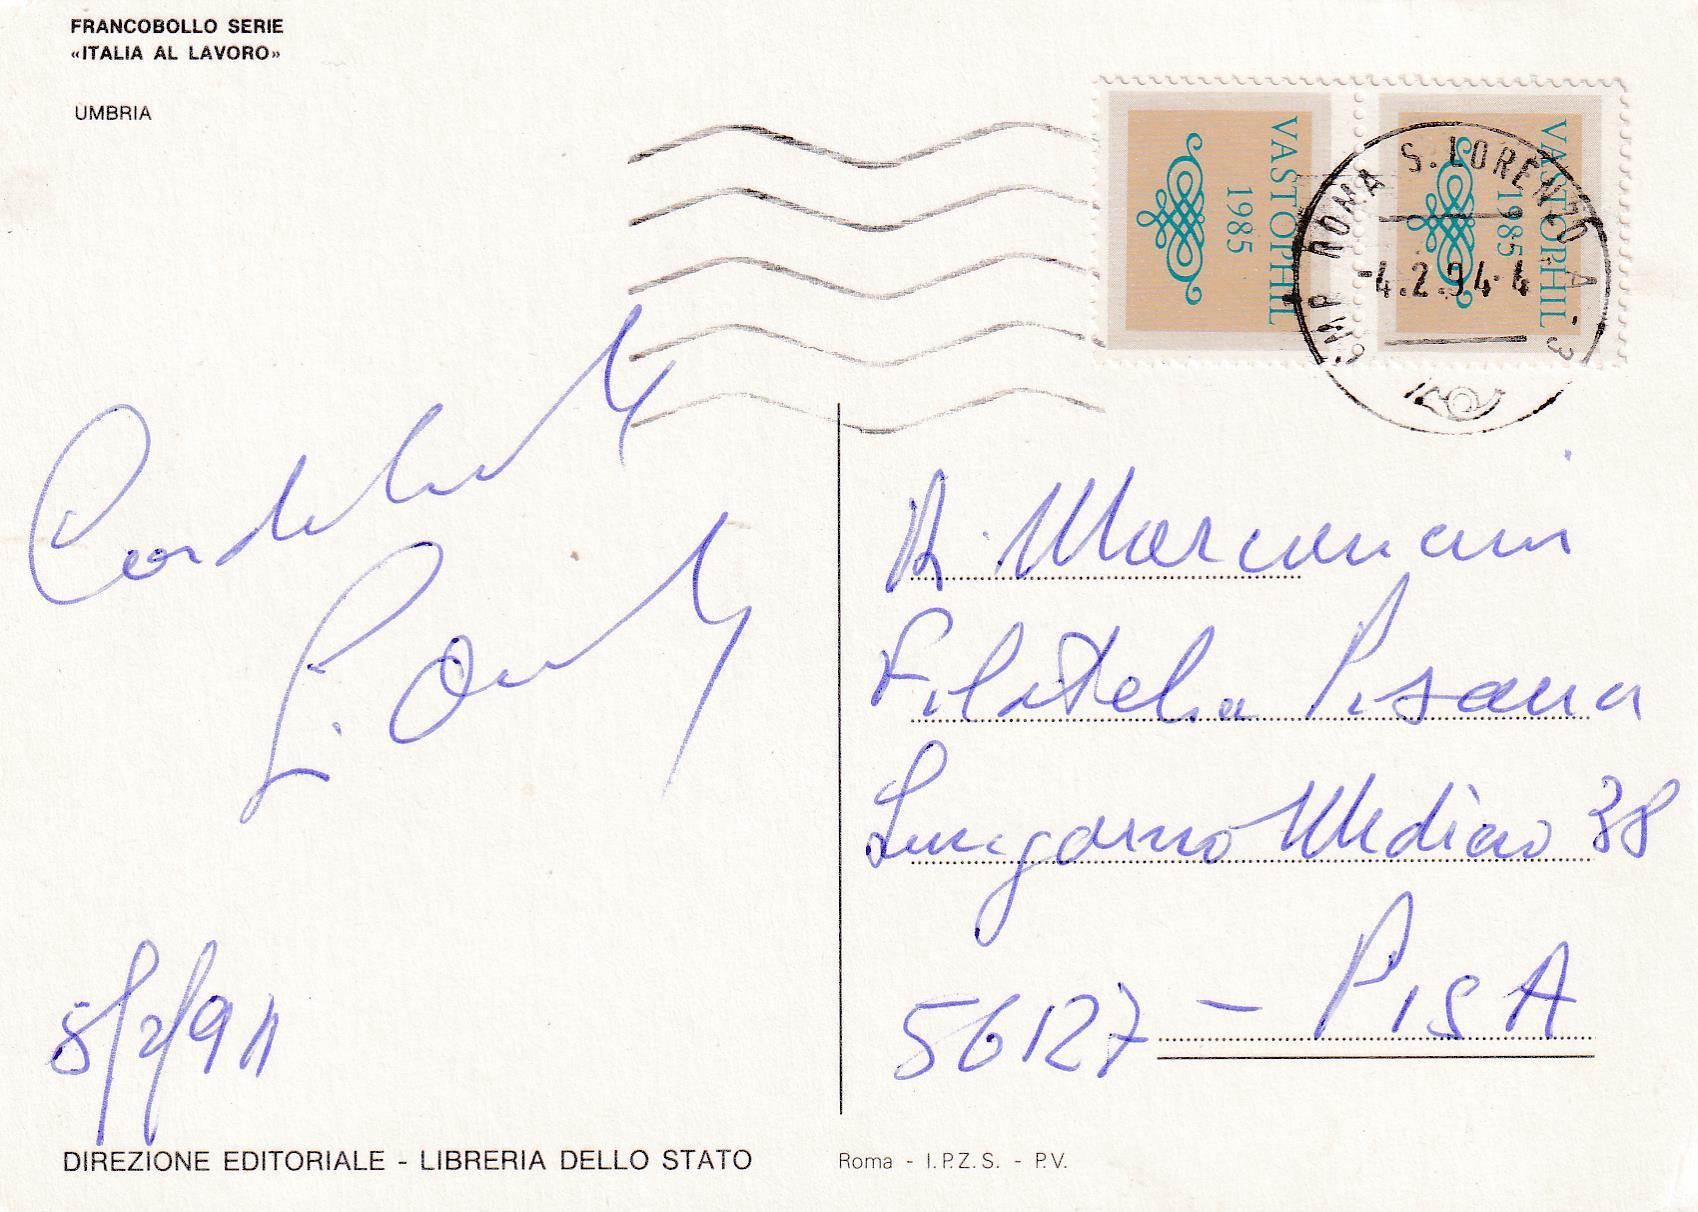 FRANCOBOLLO SERIE
«ITALIA AL LAVORO»
UMBRIA
VASTOPHIL
1985
VASTOPHIL
1985
CMP ROMA S. LORENZO A.
-4.2.94-4
A. Marcucci
Filatelia Pisana
Lungarno Mediceo 38
56127 - PISA
DIREZIONE EDITORIALE - LIBRERIA DELLO STATO
Roma - I.P.Z.S. - P.V.